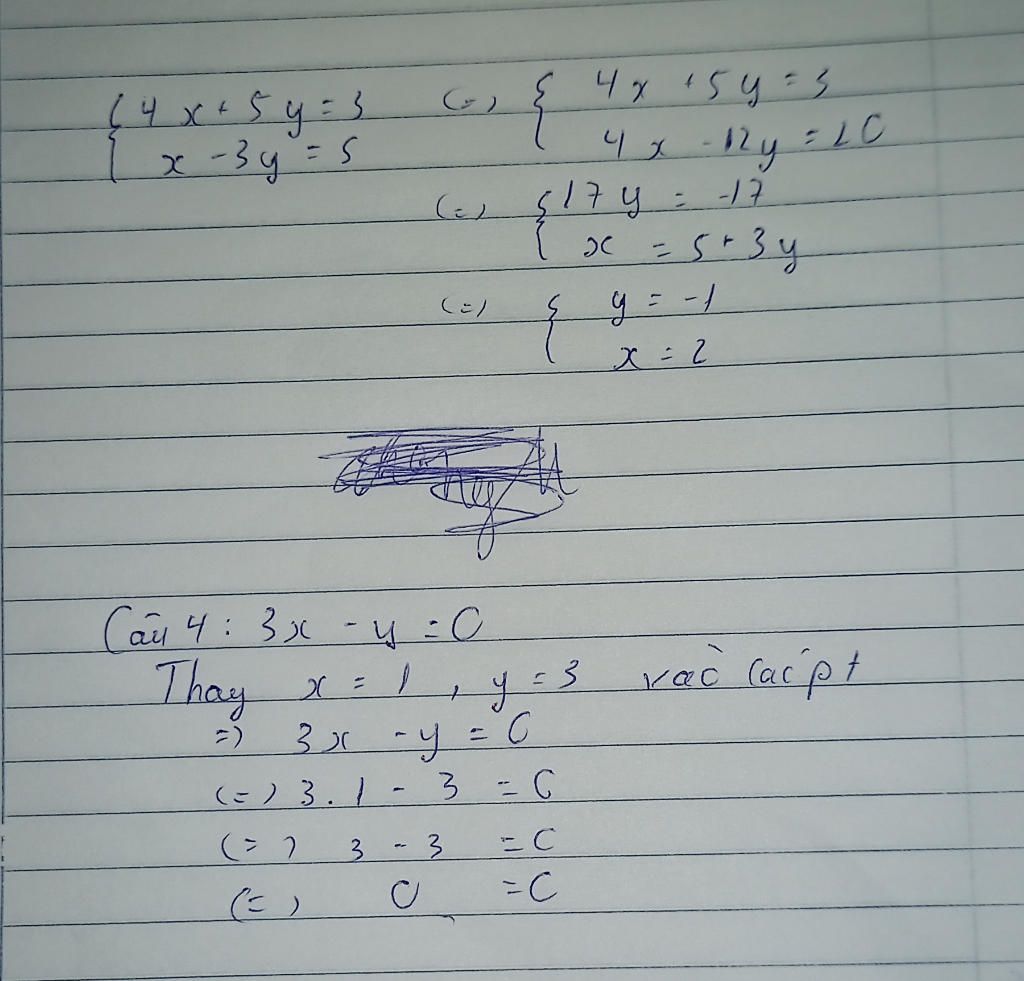 { 4x + 5y = 3 (=) { 4x + 5y = 3
{ x - 3y = 5 { 4x - 12y = 20
(=) { 17y = -17
{ x = 5 + 3y
(=) { y = -1
{ x = 2
Câu 4 : 3x - y = 0
Thay x = 1 , y = 3 vào các pt
=) 3x - y = 0
(=) 3 . 1 - 3 = 0
(=) 3 - 3 = 0
(=) 0 = 0